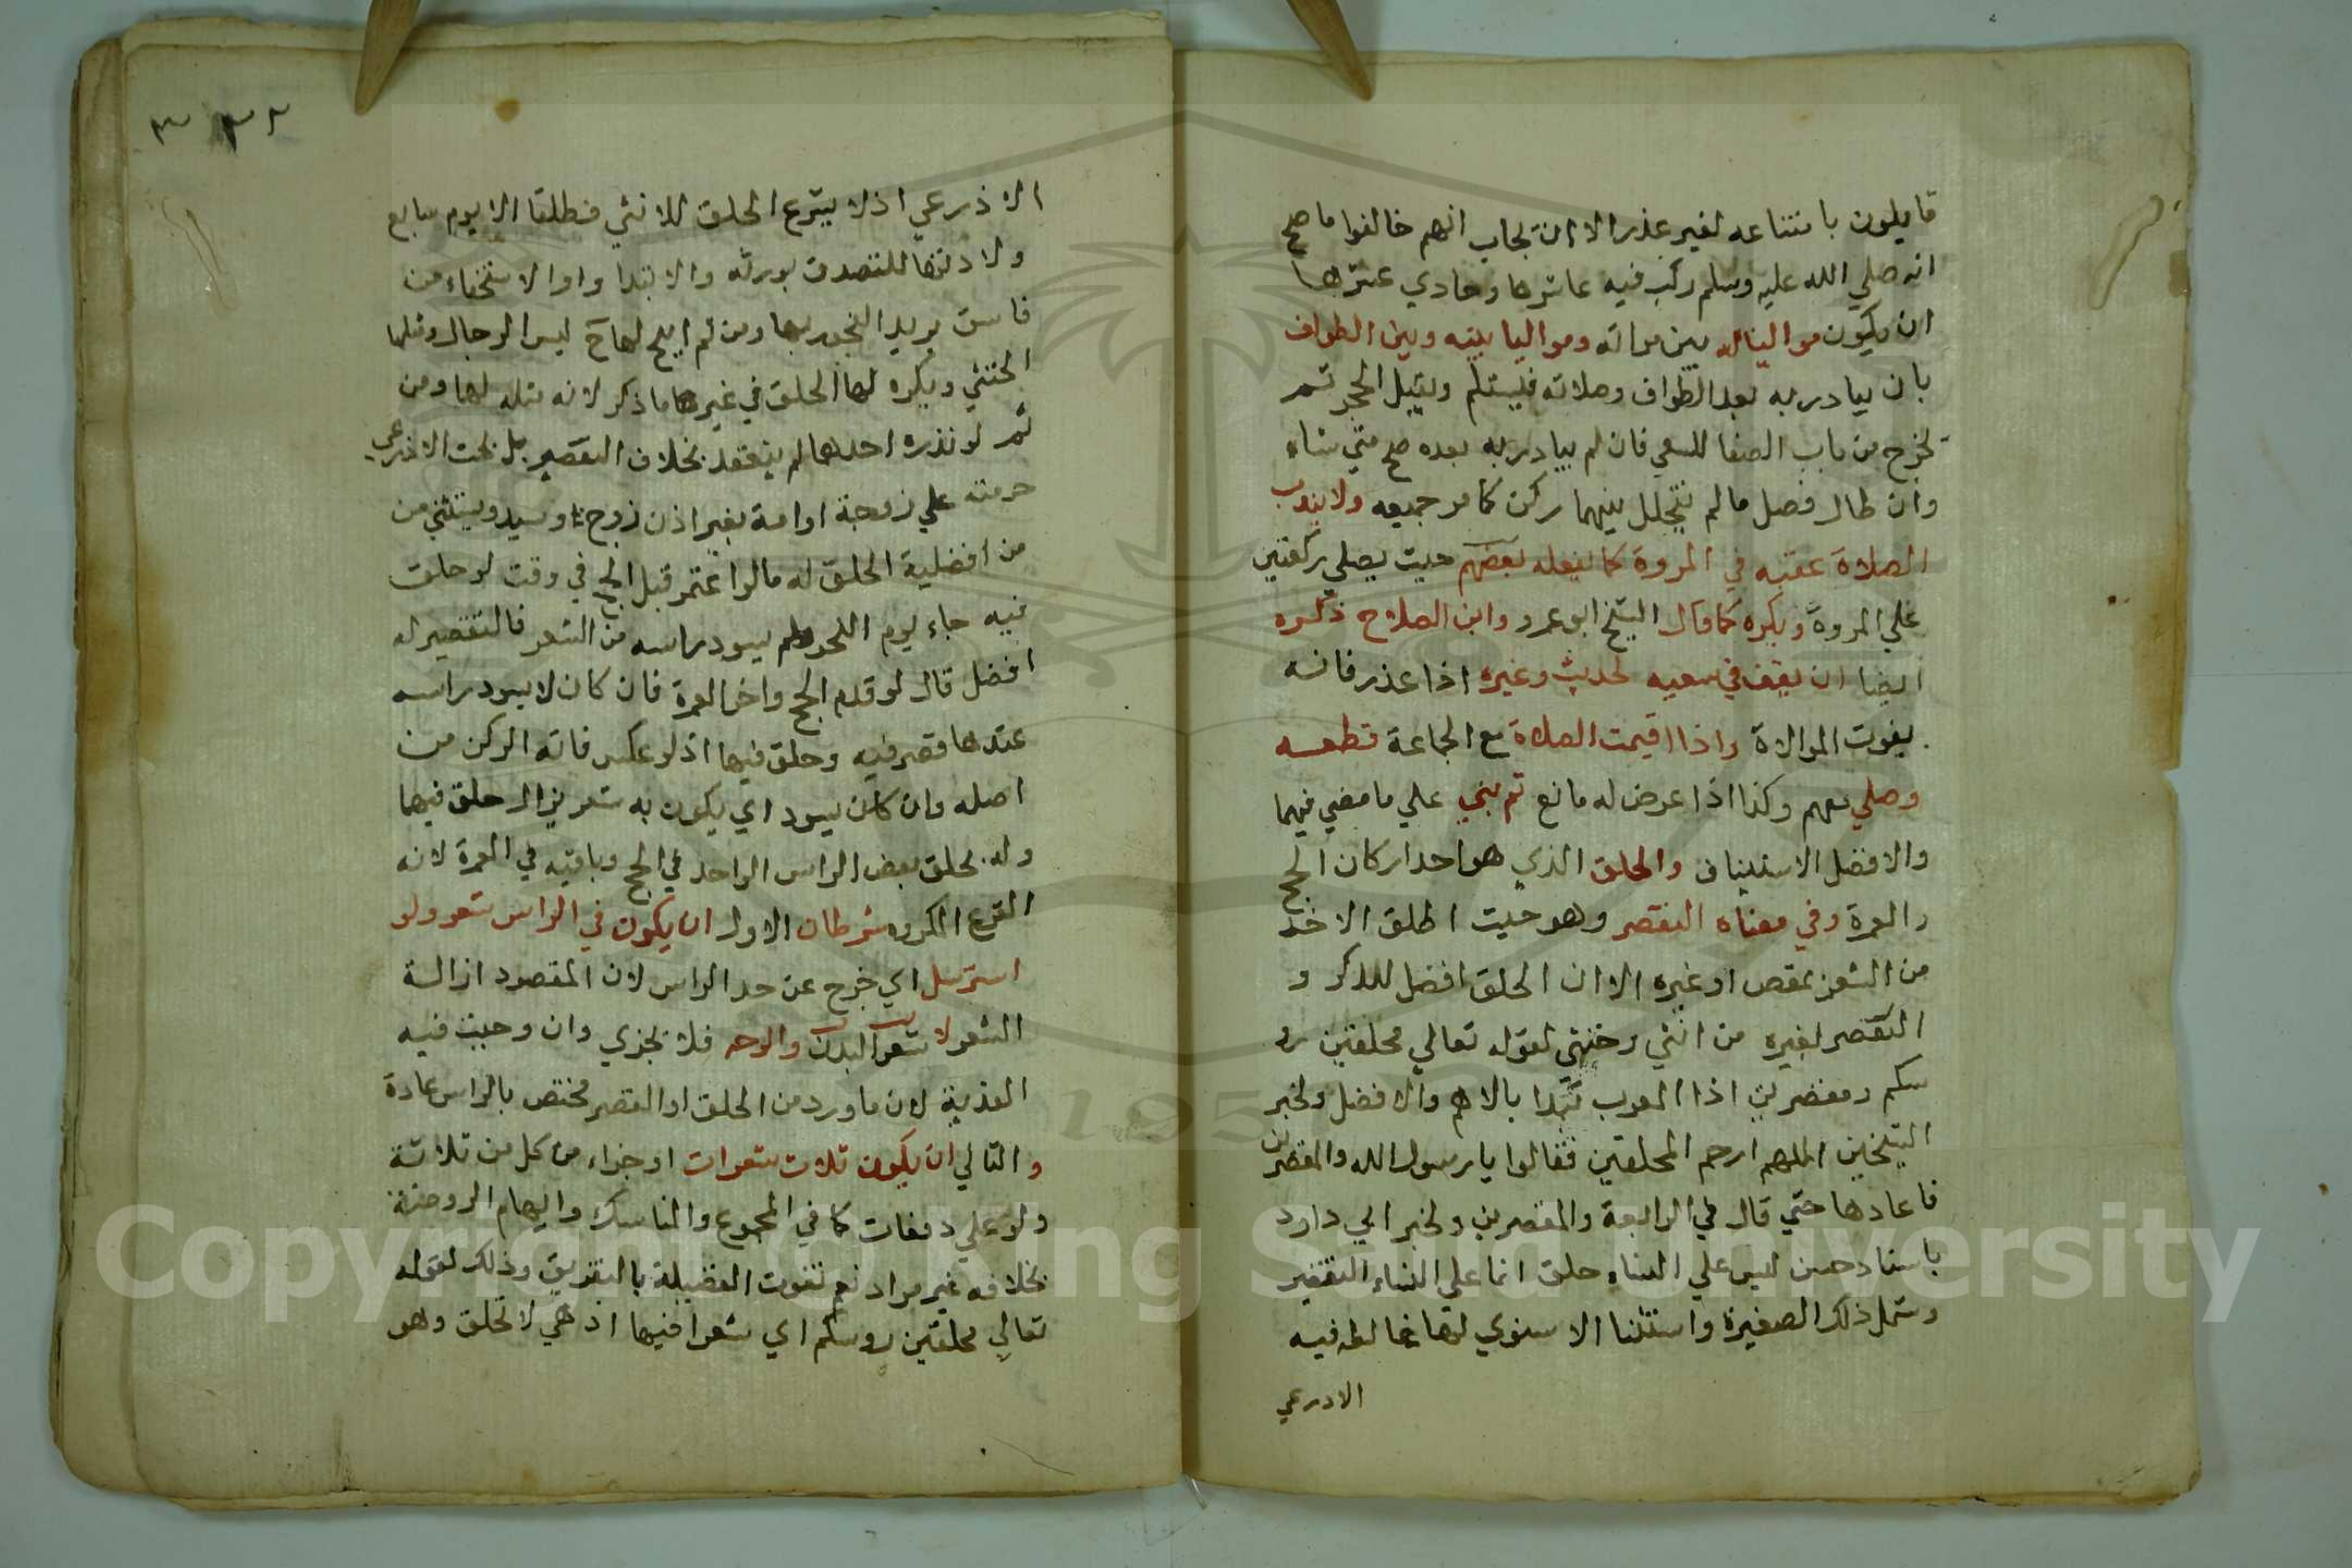 قايلون بامتناعه لغير عذر الا ان يجاب انهم خالفوا ما صح
انه صلي الله عليه وسلم ركب فيه عاشرها وحادي عشرها
ان يكون مواليا له بين مراته ومواليا بينه وبين الطواف
بان يبادر به بعد الطواف وصلاته فيستلم ويقبل الحجر ثم
يخرج من باب الصفا للسعي فان لم يبادر به بعده صح متي شاء
وان طال فصل ما لم يتخلل بينهما ركن كما مر جميعه ولا يندب
الصلاة عقبه في المروة كما يفعله بعضهم حيث يصلي ركعتين
علي المروة ويكره كما قال الشيخ ابو عمرو وابن الصلاح ذكره
ايضا ان يقف في سعيه لحديث وغيره اذا عذر فانه
يفوت الموالاة واذا اقيمت الصلاة مع الجماعة قطعه
وصلي معهم وكذا اذا عرض له مانع ثم يبني علي ما مضي فيهما
والافضل الاستيناف والحلق الذي هو احد اركان الحج
والعمرة وفي معناه التقصر وهو حيث اطلق الاخذ
من الشعر بمقص او غيره الا ان الحلق افضل للذكر و
التقصر لغيره من انثي وخنثي لقوله تعالي محلقين رو
سكم ومقصرين اذا العرب تبدا بالاهم والافضل ولخبر
الشيخين اللهم ارحم المحلقين فقالوا يا رسول الله والمقصرين
فاعادها حتي قال في الرابعة والمقصرين ولخبر ابي داود
باسناد حسن ليس علي النساء حلق انما علي النساء التقصير
وشمل ذلك الصغيرة واستثنا الاسنوي لها غالطه فيه
الادرعي
٣٢ ٣
الاذرعي اذ لا يشرع الحلق للانثي مطلقا الا يوم سابع
ولادتها للتصدق بوزنه والا لتداو او لاستخفاء من
فاسق يريد الفجور بها ومن ثم ابيح لها ح لبس الرجال ومثلها
الخنثي ويكره لها الحلق في غيرها ما ذكر لانه مثله لها ومن
ثم لو نذره احدهما لم ينعقد بخلاف التقصير بل بحث الاذرعي
حرمته علي زوجة او امة بغير اذن زوج او سيد ويستثني من
من افضلية الحلق له ما لو اعتمر قبل الحج في وقت لو حلق
فيه جاء يوم النحر ولم يسود راسه من الشعر فالتقصير له
افضل قال لو قدم الحج واخر العمرة فان كان لا يسود راسه
عندها قصر فيه وحلق فيها اذ لو عكس فاته الركن من
اصله وان كان يسود اي يكون به شعر يزال حلق فيهما
وله يحلق بعض الراس الواحد في الحج وباقيه في العمرة لانه
القزع المكروه شرطان الاول ان يكون في الراس شعر ولو
استرسل اي خرج عن حد الراس لان المقصود ازالة
الشعر لا شعر البدن والوجه فلا يجزي وان وجبت فيه
الفدية لان ما ورد من الحلق او التقصر مختص بالراس عادة
والثاني ان يكون ثلاث شعرات او جزاء من كل من ثلاثة
ولو علي دفعات كما في المجموع والمناسك وايهام الروضة
بخلافه غير مراد نعم تفوت الفضيلة بالتفريق وذلك لقوله
تعالي محلقين روسكم اي شعرا فيها اذ هي لا تحلق وهو